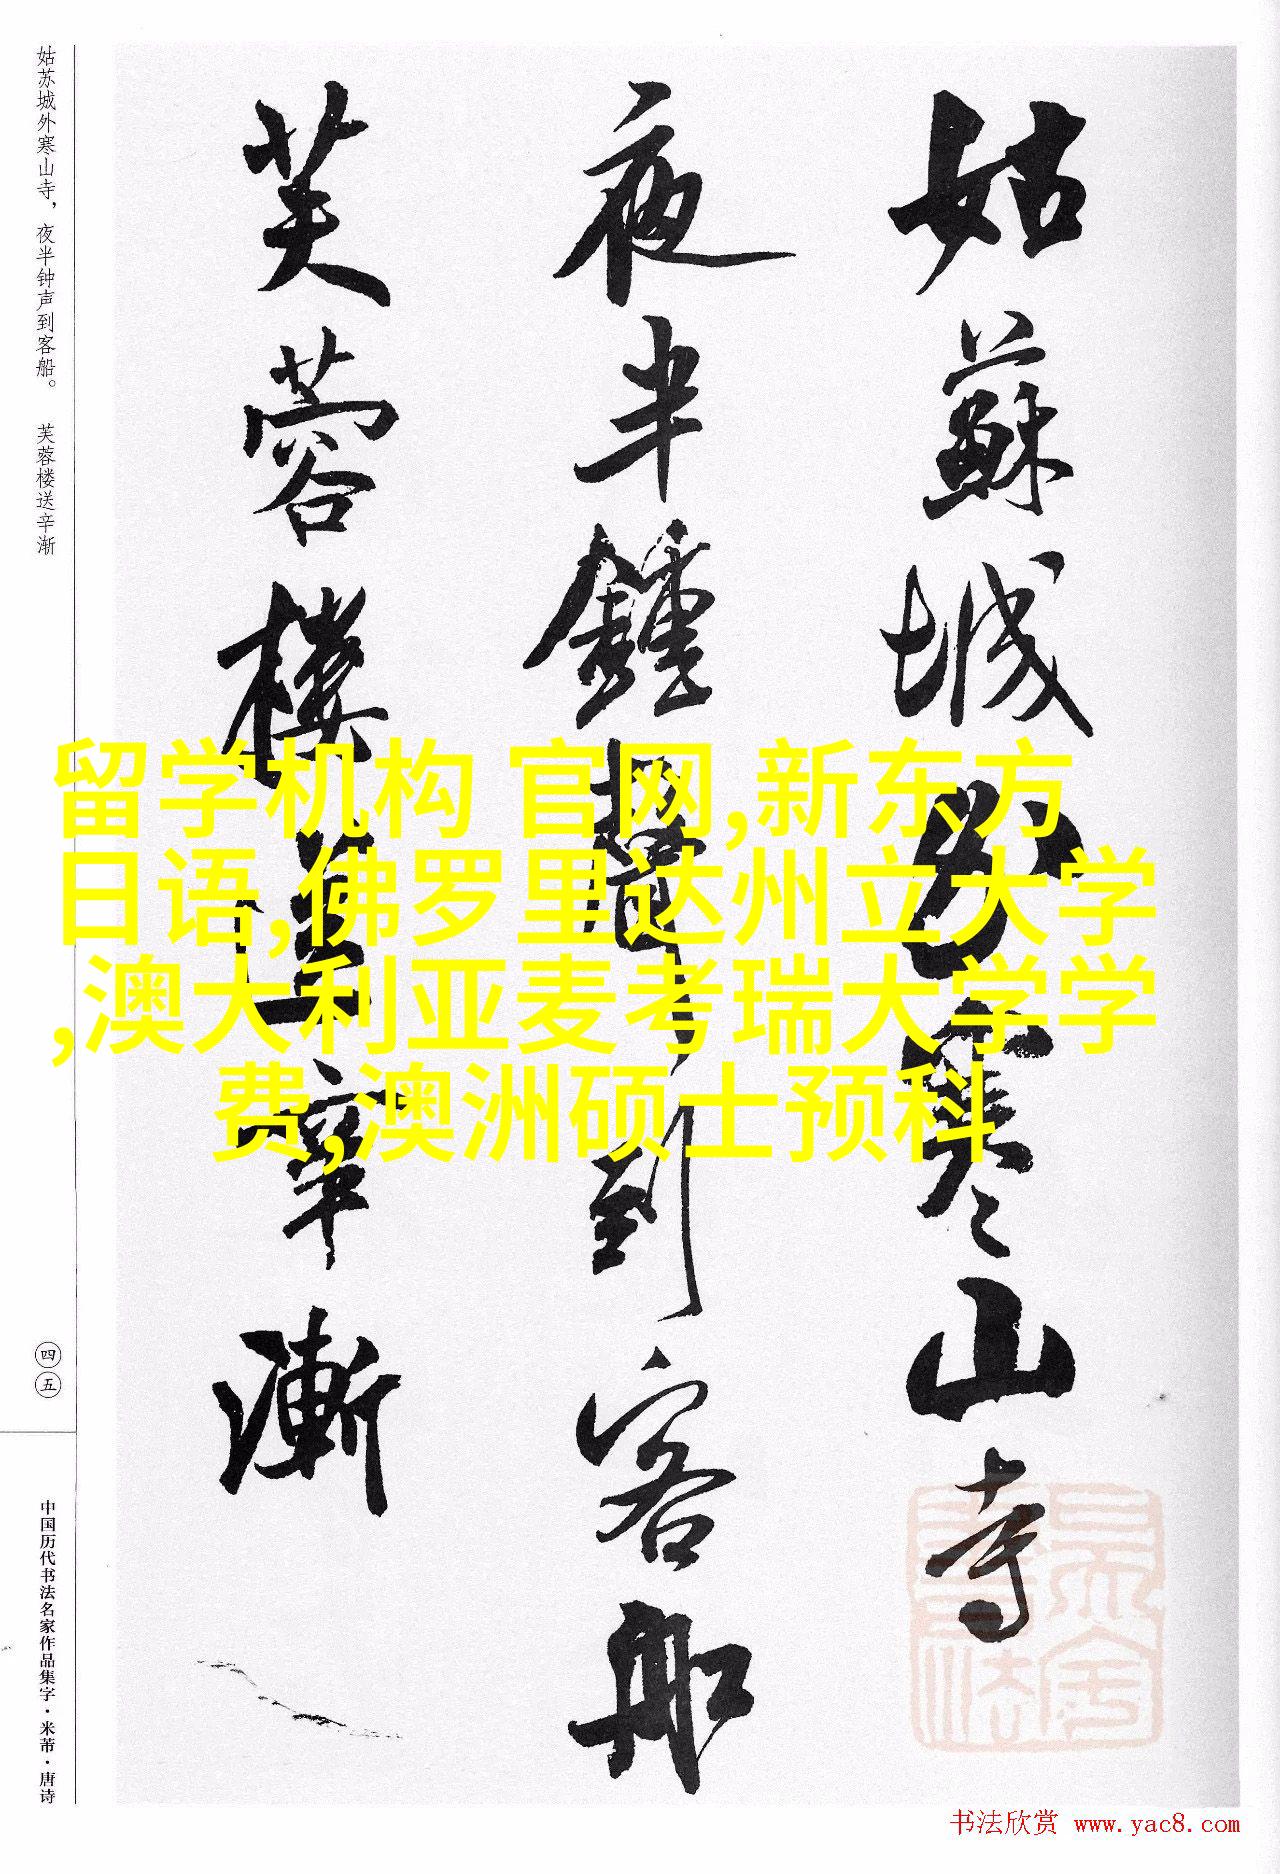 姑蘇城外寒山寺
夜半鍾聲到客船
芙蓉樓送辛漸
姑苏城外寒山寺，夜半钟声到客船。　芙蓉楼送辛渐
四五
中国历代书法名家作品集字·米芾·唐诗
留学机构 官网,新东方
日语,佛罗里达州立大学
,澳大利亚麦考瑞大学学
费,澳洲硕士预科
书法欣赏 www.yac8.com